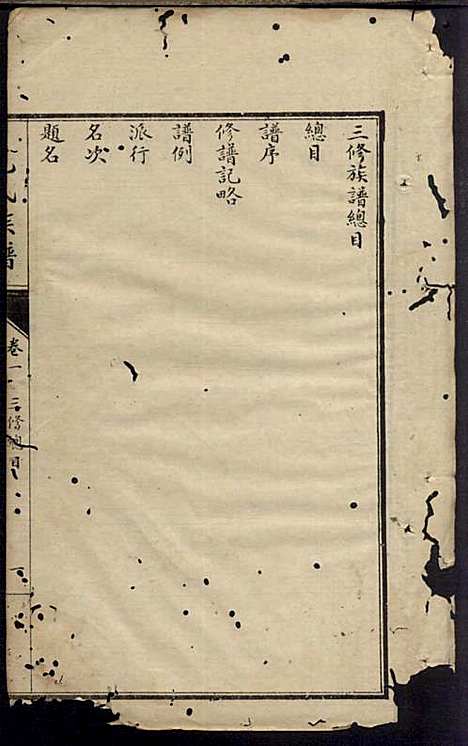 三修族譜總目
總目
譜序
修譜記略
譜例
派行
名次
題名
氏族譜
卷一
三修總目